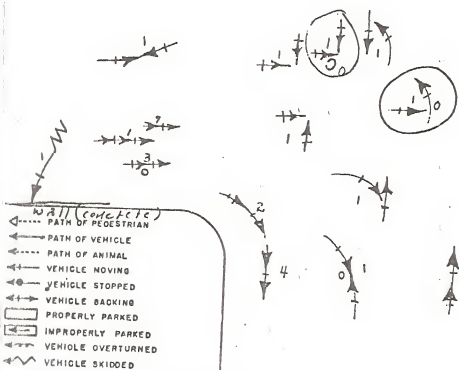 1
1
1
1
1
0
1
0
7
1
3
0
1
1
1
2
4
0 1
wall (concrete)
PATH OF PEDESTRIAN
PATH OF VEHICLE
PATH OF ANIMAL
VEHICLE MOVING
VEHICLE STOPPED
VEHICLE BACKING
PROPERLY PARKED
IMPROPERLY PARKED
VEHICLE OVERTURNED
VEHICLE SKIDDED